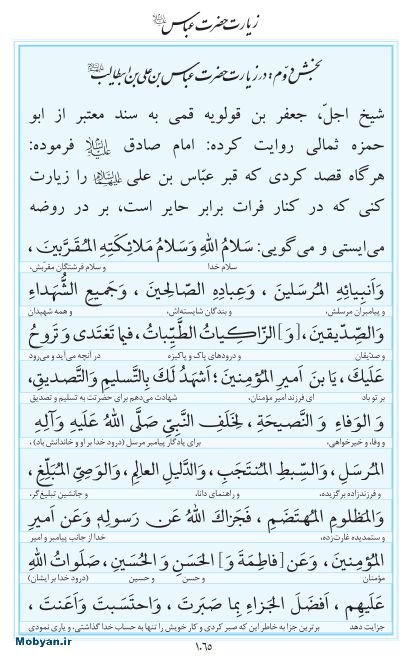 زیارت حضرت عباس علیه‌السلام
بخش دوم: در زیارت حضرت عباس بن علی بن ابیطالب علیهما‌السلام
شیخ اجلّ، جعفر بن قولویه قمی به سند معتبر از ابو
حمزه ثمالی روایت کرده: امام صادق علیه‌السلام فرموده:
هرگاه قصد کردی که قبر عبّاس بن علی علیهما‌السلام را زیارت
کنی که در کنار فرات برابر حایر است، بر در روضه
می‌ایستی و می‌گویی: سَلامُ اللهِ وَسَلامُ مَلائِکَتِهِ المُقَرَّبینَ ،
سلام خدا و سلام فرشتگان مقرّبش،
وَاَنبِیائِهِ المُرسَلینَ ، وَعِبادِهِ الصّالِحینَ ، وَجَمیعِ الشُّهَداءِ
و پیامبران مرسلش، و بندگان شایسته‌اش، و همه شهیدان
وَالصِّدّیقینَ ، [وَ] الزّاکِیاتُ الطَّیِّباتُ ، فیما تَغتَدی وَ تَروحُ
و صدّیقان و درودهای پاک و پاکیزه در آنچه می‌آید و می‌رود
عَلَیکَ ، یَا بنَ اَمیرِ المُؤمِنینَ ؛ اَشهَدُ لَکَ بِالتَّسلیمِ وَالتَّصدیقِ،
بر تو باد ای فرزند امیر مؤمنان، شهادت می‌دهم برای حضرتت به تسلیم و تصدیق
وَ الوَفاءِ وَ النَّصیحَةِ ، لِخَلَفِ النَّبِیِّ صَلَّی اللهُ عَلَیهِ وَآلِهِ
و وفا، و خیرخواهی، برای یادگار پیامبر مرسل (درود خدا بر او و خاندانش باد) ،
المُرسَلِ ، وَالسِّبطِ المُنتَجَبِ ، وَالدَّلیلِ العالِمِ ، وَالوَصِیِّ المُبَلِّغِ ،
و فرزندزاده برگزیده، و راهنمای دانا، و جانشین تبلیغ‌گر،
وَالمَظلومِ المُهتَضَمِ ، فَجَزاکَ اللهُ عَن رَسولِهِ وَعَن اَمیرِ
و ستمدیده غارت‌زده، خدا از جانب پیامبر و امیر
المُؤمِنینَ ، وَعَنِ [فاطِمَةَ وَ] الحَسَنِ وَ الحُسَینِ ، صَلَواتُ اللهِ
مؤمنان و حسن و حسین (درود خدا بر ایشان)
عَلَیهِم ، اَفضَلَ الجَزاءِ بِما صَبَرتَ ، وَاحتَسَبتَ وَاَعَنتَ ،
جزایت دهد برترین جزا به خاطر این که صبر کردی و کار خویش را تنها به حساب خدا گذاشتی، و یاری نمودی
۱۰۶۵
Mobyan.ir